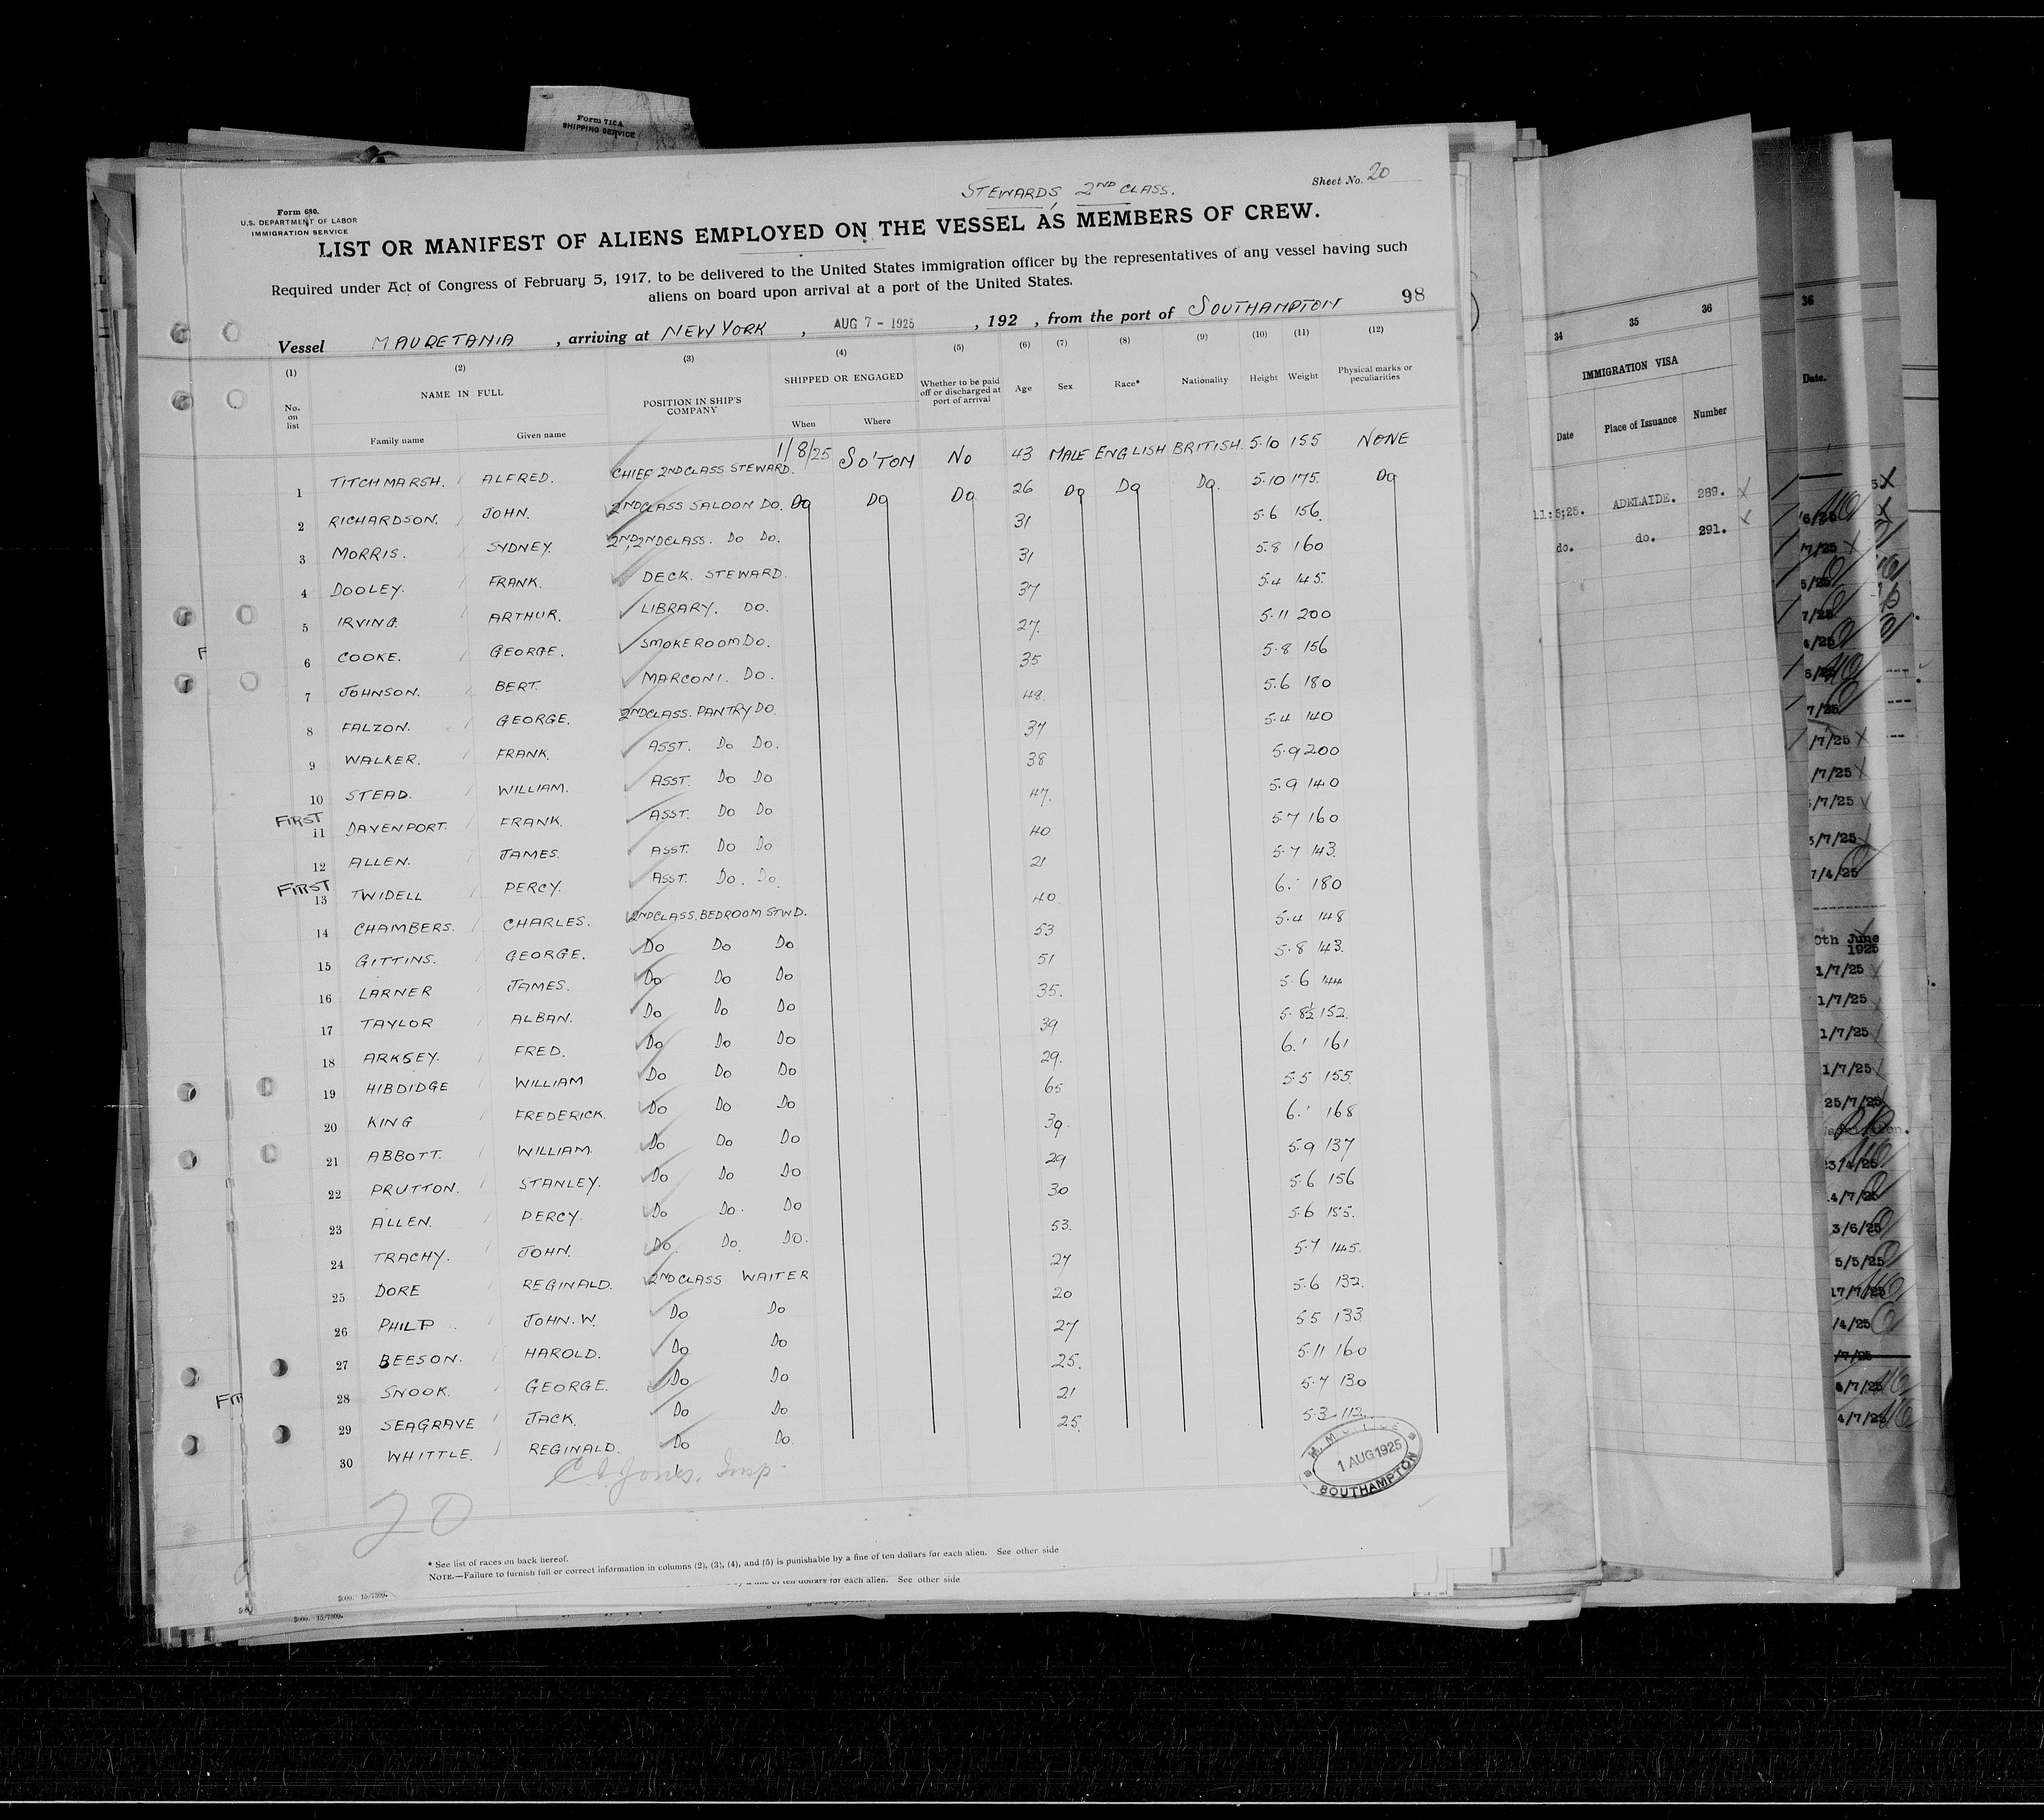 Form 710A
SHIPPING SERVICE
STEWARDS, 2ND CLASS.
Sheet No. 20
Form 680.
U.S. DEPARTMENT OF LABOR
IMMIGRATION SERVICE
LIST OR MANIFEST OF ALIENS EMPLOYED ON THE VESSEL AS MEMBERS OF CREW.
Required under Act of Congress of February 5, 1917, to be delivered to the United States immigration officer by the representatives of any vessel having such
aliens on board upon arrival at a port of the United States.
98
Vessel MAURETANIA, arriving at NEW YORK, AUG 7 - 1925, 192 , from the port of SOUTHAMPTON
(1) (2) (3) (4) (5) (6) (7) (8) (9) (10) (11) (12)
No. on list NAME IN FULL Family name Given name POSITION IN SHIP'S COMPANY SHIPPED OR ENGAGED When Where Whether to be paid off or discharged at port of arrival Age Sex Race* Nationality Height Weight Physical marks or peculiarities
1 TITCHMARSH. ALFRED. CHIEF 2ND CLASS STEWARD. 1/8/25 SO'TON NO 43 MALE ENGLISH BRITISH. 5.10 155 NONE
2 RICHARDSON. JOHN. 2ND CLASS SALOON DO. Do Do Do 26 Do Do Do. 5.10 175. Do
3 MORRIS. SYDNEY. 2ND, 2ND CLASS. DO DO. 31 5.6 156.
4 DOOLEY. FRANK. DECK. STEWARD. 31 5.8 160
5 IRVING. ARTHUR. LIBRARY. DO. 37 5.4 145.
6 COOKE. GEORGE. SMOKE ROOM DO. 27. 5.11 200
7 JOHNSON. BERT. MARCONI. DO. 35 5.8 156
8 FALZON. GEORGE. 2ND CLASS. PANTRY DO. 48. 5.6 180
9 WALKER. FRANK. ASST. DO DO. 37 5.4 140
10 STEAD. WILLIAM. ASST. DO DO 38 5.9 200
FIRST
11 DAVENPORT. FRANK. ASST. DO DO 47. 5.9 140
12 ALLEN. JAMES. ASST. DO DO 40 5.7 160
FIRST
13 TWIDELL PERCY. ASST. DO. DO. 21 5.7 143.
14 CHAMBERS. CHARLES. 2ND CLASS. BEDROOM STWD. 40. 6.' 180
15 GITTINS. GEORGE. Do Do Do 53 5.4 148
16 LARNER JAMES. Do Do Do 51 5.8 143.
17 TAYLOR ALBAN. Do Do Do 35. 5.6 144
18 ARKSEY. FRED. Do Do Do 39 5.8½ 152.
19 HIBDIDGE WILLIAM Do Do Do 29. 6.' 161
20 KING FREDERICK. Do Do Do 65 5.5 155.
21 ABBOTT. WILLIAM. Do Do Do 39. 6.' 168
22 PRUTTON. STANLEY. Do Do Do 29 5.9 137
23 ALLEN. PERCY. Do Do. Do 30 5.6 156
24 TRACHY. JOHN. Do. Do. Do. 53. 5.6 155.
25 DORE REGINALD. 2ND CLASS WAITER 27 5.7 145.
26 PHILP. JOHN. W. Do Do 20 5.6 132.
27 BEESON. HAROLD. Do Do 27 5.5 133.
28 SNOOK. GEORGE. Do Do 25. 5.11 160
29 SEAGRAVE JACK. Do Do 21 5.7 130
30 WHITTLE. REGINALD. Do Do. 25. 5.3 112.
Jones, Insp.
20
1 AUG 1925
SOUTHAMPTON
* See list of races on back hereof.
NOTE.—Failure to furnish full or correct information in columns (2), (3), (4), and (5) is punishable by a fine of ten dollars for each alien. See other side
for each alien. See other side
5000. 15/7309.
5000. 15/7309.
34 35 36
IMMIGRATION VISA
Date Place of Issuance Number
11:5;25. ADELAIDE. 289.
do. do. 291.
36
Date.
7/25
5/25
7/25
6/25
5/25
7/25
/7/25
/7/25
5/7/25
5/7/25
7/4/25
0th June
1925
1/7/25
1/7/25
1/7/25
1/7/25
25/7/25
23/4/25
4/7/25
3/6/25
5/5/25
17/7/25
/4/25
/7/25
6/7/25
4/7/25